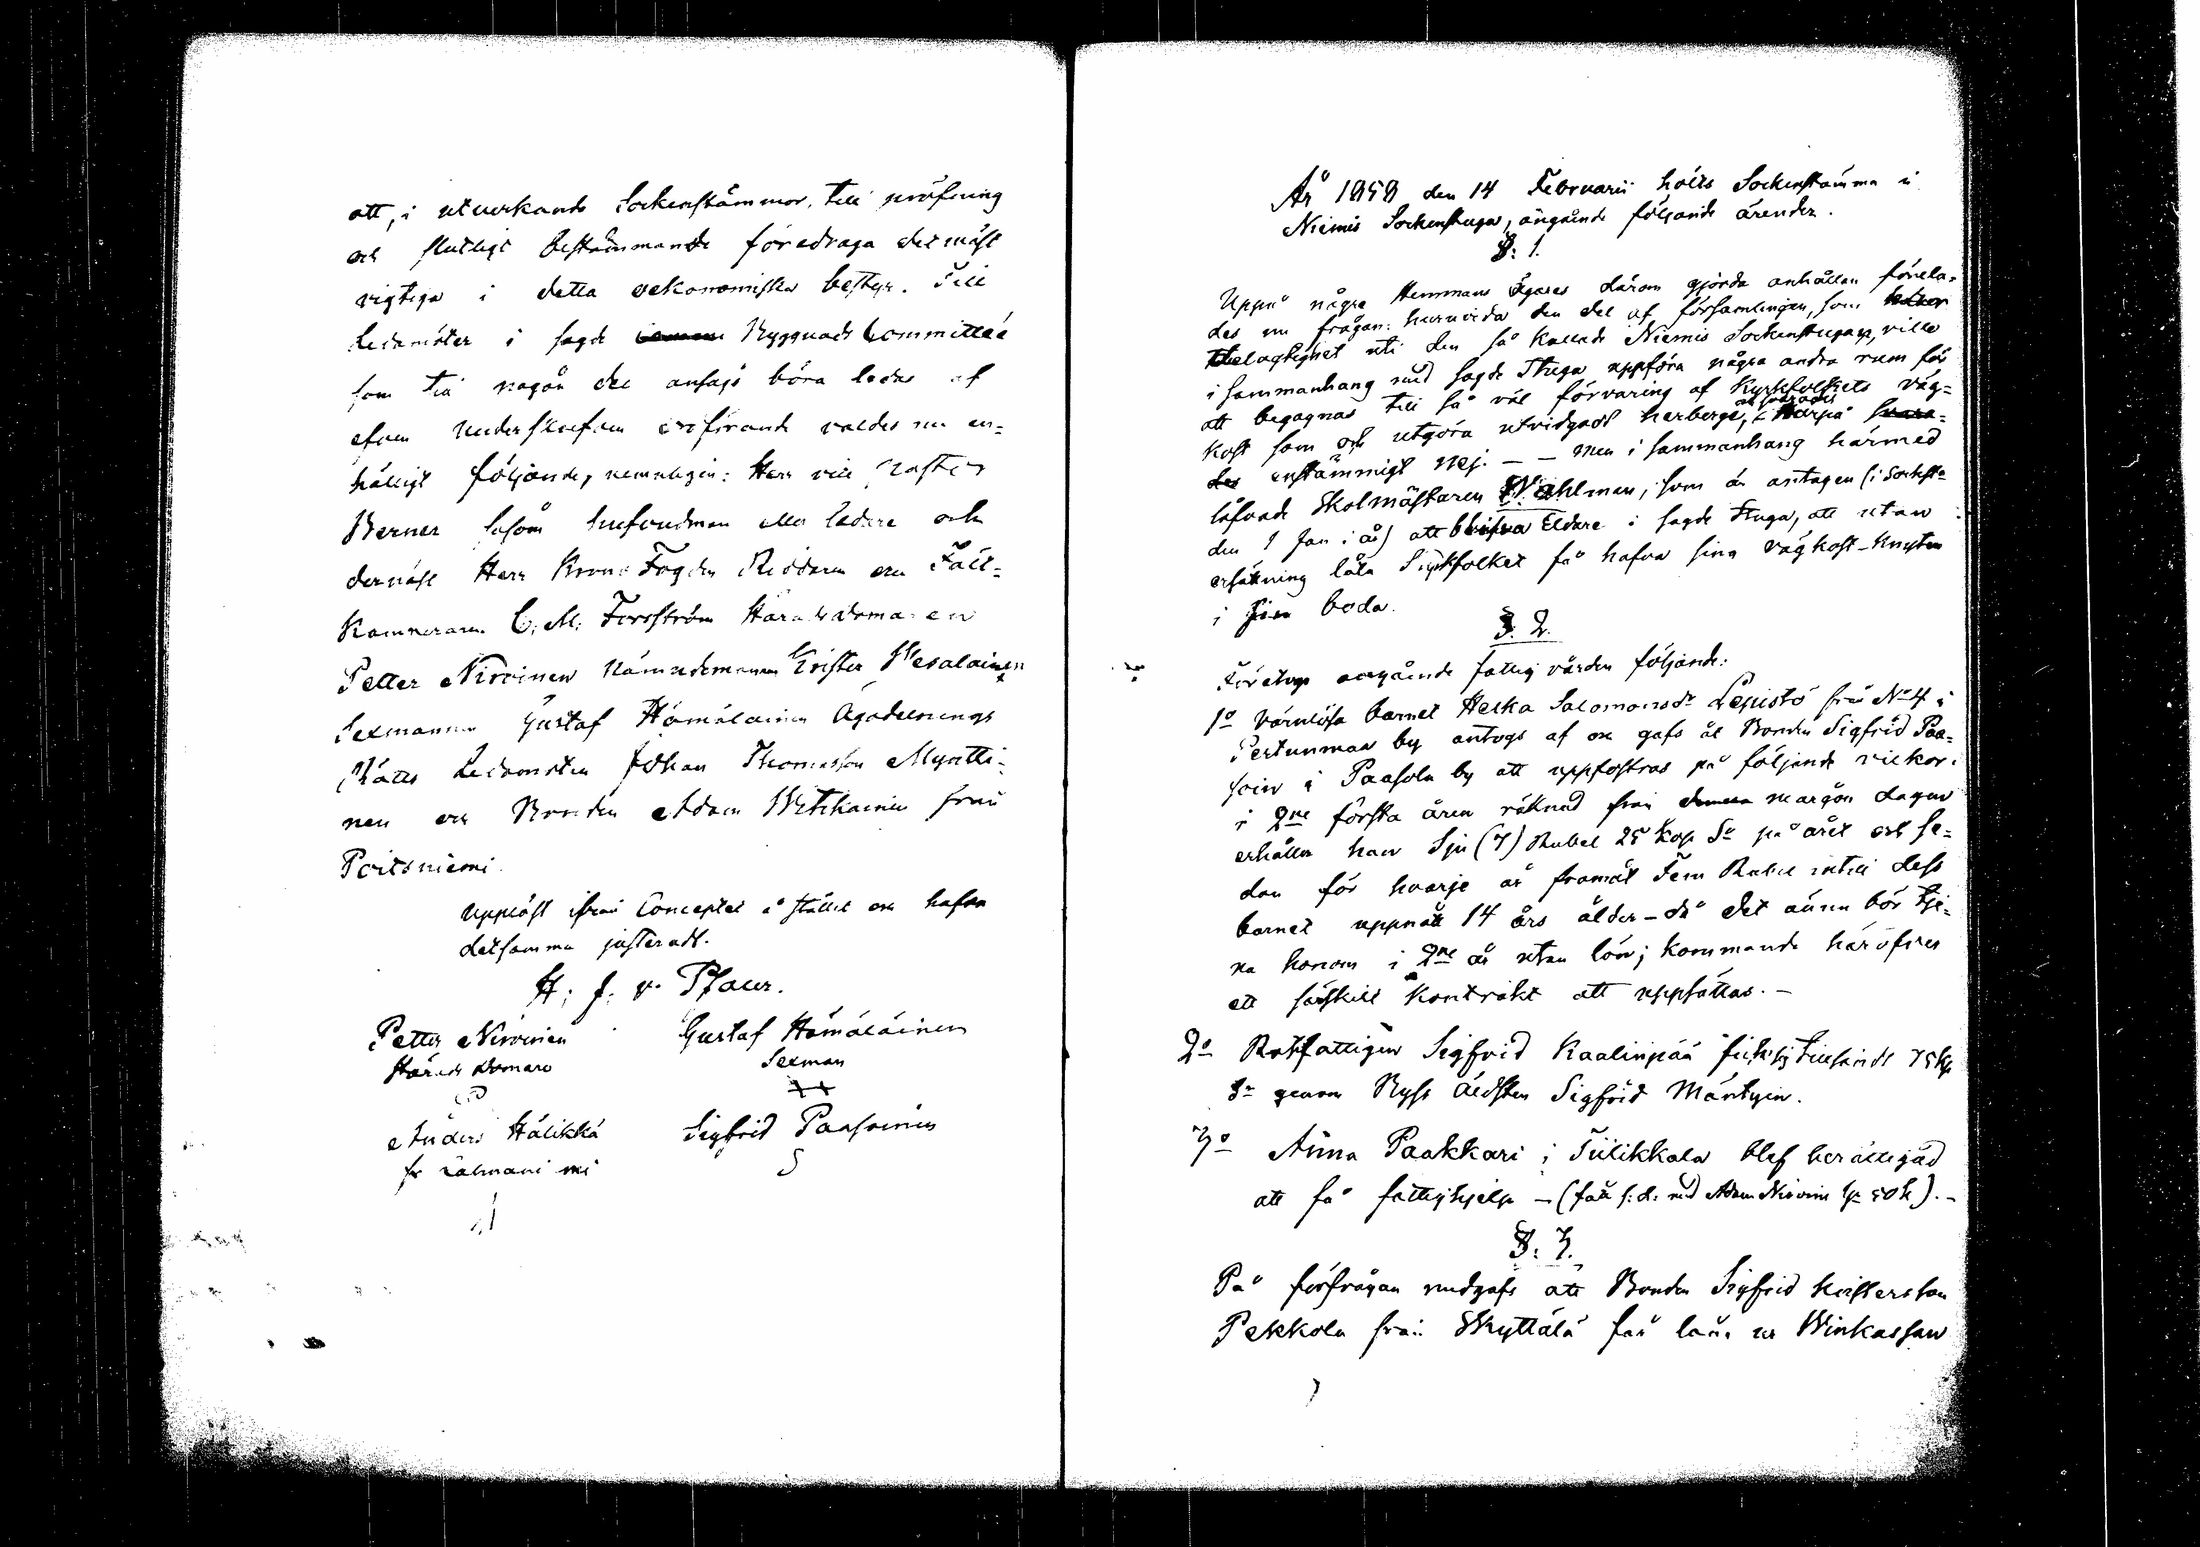 att, i utverkande Sockenstämmor, till pröfning
och slutligt bestämmande föredraga det mäst
vigtiga i detta oekonomiska bestyr. Till
Ledamöter i sagde Byggnads Committée
som till någon del ansågs böra ledas af
efven Underskrefven ordförande valdes nu en-
hälligt följande, nemnligen: Herr vice Pastor
Berner såsom hufvudman eller ledare och
dernäst Herr Krono Fogden Riddaren och Fält-
Kamreraren C. M. Forsström Härads domaren
Petter Nirvinen Nämndemannen Crister Wesalainen
Sexmannen Gustaf Hämäläinen Ägodelnings
Rätts Ledamoten Johan Thomasson Myntti-
nen och Bonden Adam Wehkainen från
Poitsniemi.
Uppläst ifrån Conceptet å stället och hafva
detsamma justeradt.
H. J. v. Pfaur.
Petter Nirvinen Gustaf Hämäläinen
Härads Domare Sexman
Anders Hälikkä Sigfrid Paasoinen
fr Salmani mi
År 1858 den 14 Februarii hölts Sockenstämma i
Niemis Sockenstuga, angående följande ärender.
§: 1.
Uppå några Hemmans Ägares därom gjorda anhållan förela-
des nu frågan: huruvida den del af församlingen, som
delagtighet uti den så kallade Niemis Sockenstugan, ville
i sammanhang med sagde Stuga uppföra några andra rum för
att begagnas till så väl förvaring af Kyrkfolkets väg-
kost som och utgöra utvidgadt herberge,
enstämmigt nej. — — men i sammanhang härmed
låfvade Skolmästaren Wahlman, som är antagen (i Sockst-
den 1 Jan i år) att blifva Eldare i sagde Stuga, att utan
ersätning låta Kyrkfolket få hafva sina vägkost-knyten
i sin boda.
§. 2.
Företogs angående fattig vården följande:
1o Värnlösa barnet Helka Salomonsdr Lepistö från No 4 i
Pertunmaa by antogs af och gafs åt Bonden Sigfrid Paa-
soin i Paasola by att uppfostras på följande vilkor:
i 2ne första åren räknad från morgon dagen
erhåller han Sju (7) Rubel 25 Kop Sr på året och se-
dan för hvarje år framåt Fem Rubel intill dess
barnet uppnått 14 års ålder – då det ännu bör tje-
na honom i 2ne år utan lön; kommande häröfver
ett särskilt Kontrakt att uppsättas. —
2o Rotfattigen Sigfrid Kaalinpää fick sig tillsändt 75 kp
Sr genom Bys Åldsten Sigfrid Mäntyin.
3o Anna Paakkari i Tiilikkala blef berättigad
att få fattighjelp — (fått s. d. med Adam Nirvinen 1 50 k). —
§: 3.
På förfrågan medgafs att Bonden Sigfrid Kristersson
Pekkola från Skyttälä får låna ur Winkassan